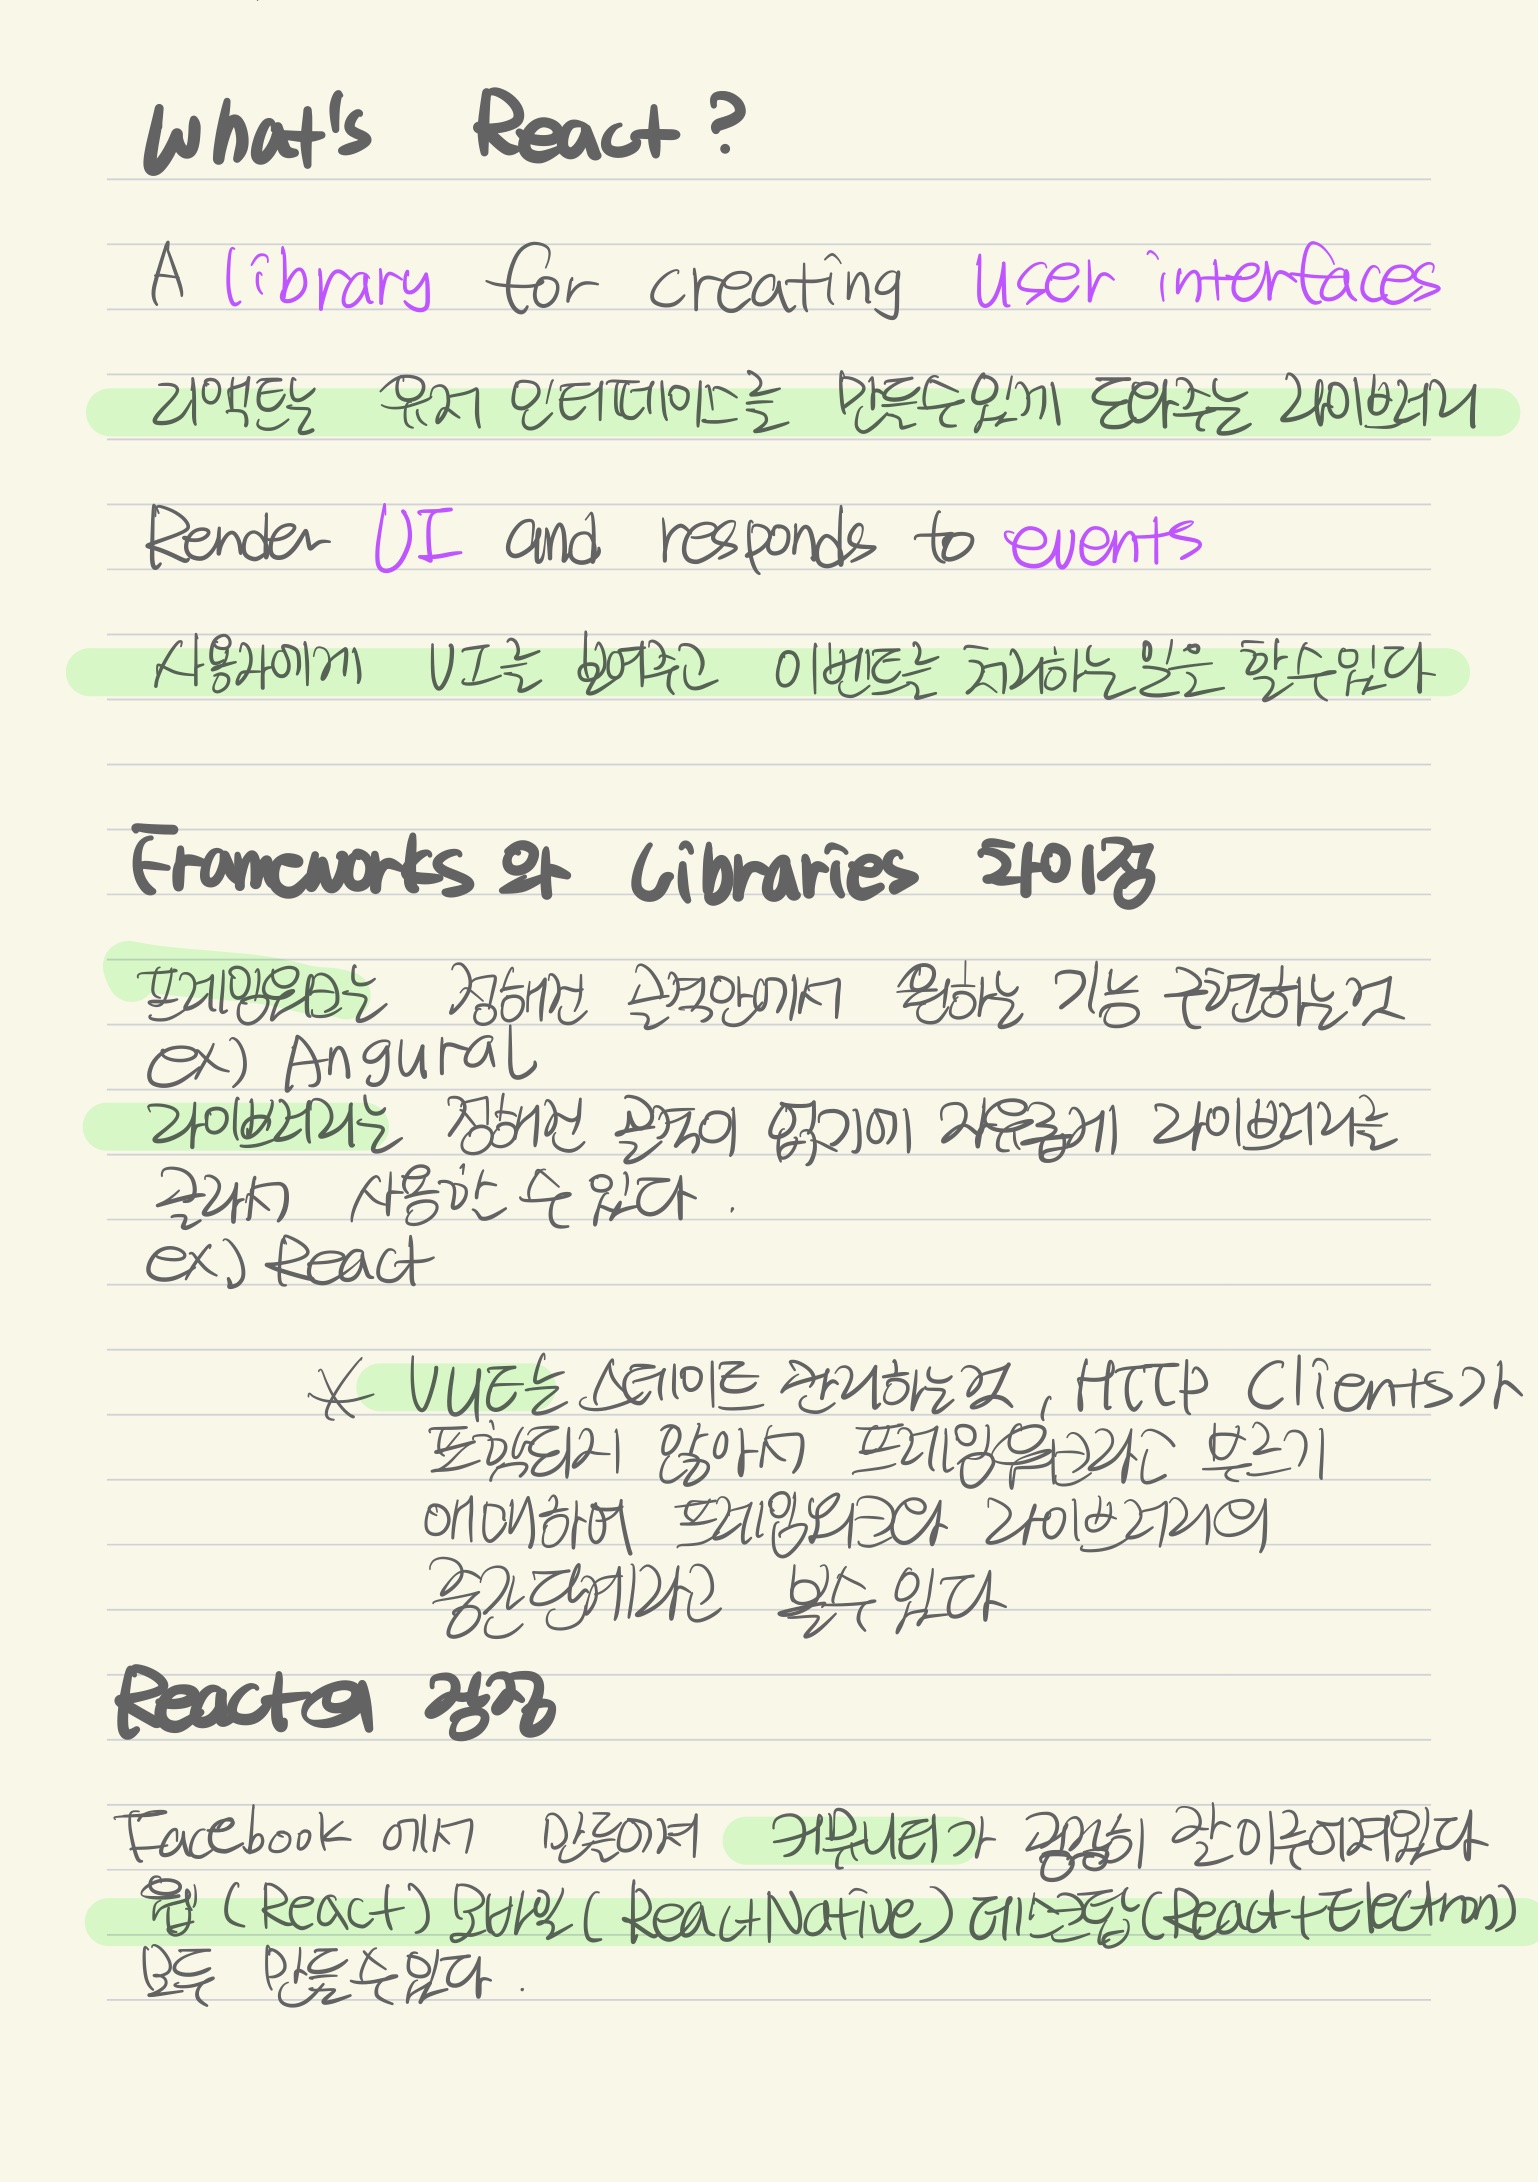 What's React?
A library for creating User interfaces
리액트는 유저 인터페이스를 만들수있게 도와주는 라이브러리
Render UI and responds to events
사용자에게 UI를 보여주고 이벤트를 처리하는 일을 할수있다
Frameworks 와 Libraries 차이점
프레임워크는 정해진 골격안에서 원하는 기능 구현하는것
ex) Angural
라이브러리는 정해진 골격이 없기에 자유롭게 라이브러리를
골라서 사용할 수 있다.
ex) React
* VUE는 스테이트 관리하는것, HTTP Clients가
포함되지 않아서 프레임워크라고 부르기
애매하여 프레임워크와 라이브러리의
중간단계라고 볼수 있다
React의 강점
Facebook 에서 만들어져 커뮤니티가 굉장히 잘 이루어져있다
웹 (React) 모바일 (ReactNative) 데스크탑 (React+Electron)
모두 만들수있다.